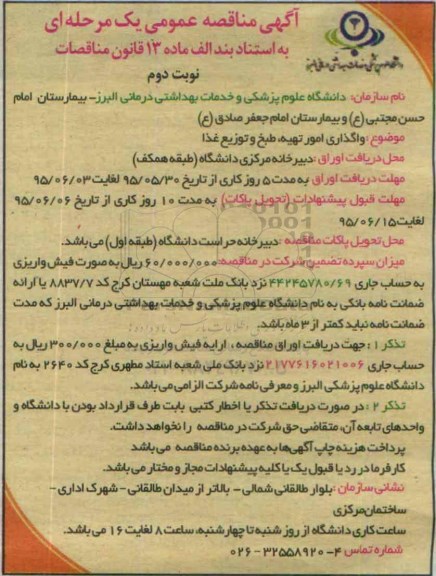 آگهی مناقصه عمومی یک مرحله ای
به استناد بند الف ماده ۱۳ قانون مناقصات
نوبت دوم
نام سازمان: دانشگاه علوم پزشکی و خدمات بهداشتی درمانی البرز- بیمارستان امام
حسن مجتبی (ع) و بیمارستان امام جعفر صادق (ع)
موضوع: واگذاری امور تهیه، طبخ و توزیع غذا
محل دریافت اوراق: دبیرخانه مرکزی دانشگاه (طبقه همکف)
مهلت دریافت اوراق به مدت ۵ روز کاری از تاریخ ۹۵/۰۵/۳۰ لغایت ۹۵/۰۶/۰۳
مهلت قبول پیشنهادات (تحویل پاکات) به مدت ۱۰ روز کاری از تاریخ ۹۵/۰۶/۰۶
لغایت ۹۵/۰۶/۱۵
محل تحویل پاکات مناقصه: دبیرخانه حراست دانشگاه (طبقه اول) می باشد.
میزان سپرده تضمین شرکت در مناقصه: ۶۰/۰۰۰/۰۰۰ ریال به صورت فیش واریزی
به حساب جاری ۴۴۲۴۵۷۸۰/۶۹ نزد بانک ملت شعبه مهستان کرج کد ۸۸۳۷/۷ یا ارائه
ضمانت نامه بانکی به نام دانشگاه علوم پزشکی و خدمات بهداشتی درمانی البرز که مدت
ضمانت نامه نباید کمتر از ۳ ماه باشد.
تذکر ۱: جهت دریافت اوراق مناقصه، ارایه فیش واریزی به مبلغ ۳۰۰/۰۰۰ ریال به
حساب جاری ۲۱۷۷۶۱۶۰۲۱۰۰۶ نزد بانک ملی شعبه استاد مطهری کرج کد ۲۶۴۰ به نام
دانشگاه علوم پزشکی البرز و معرفی نامه شرکت الزامی می باشد.
تذکر ۲: در صورت دریافت تذکر یا اخطار کتبی بابت طرف قرارداد بودن با دانشگاه و
واحدهای تابعه آن، متقاضی حق شرکت در مناقصه را نخواهد داشت.
پرداخت هزینه چاپ آگهی ها به عهده برنده مناقصه می باشد
کارفرما در رد یا قبول یک یا کلیه پیشنهادات مجاز و مختار می باشد.
نشانی سازمان: بلوار طالقانی شمالی - بالاتر از میدان طالقانی - شهرک اداری -
ساختمان مرکزی
ساعت کاری دانشگاه از روز شنبه تا چهارشنبه، ساعت ۸ لغایت ۱۶ می باشد.
شماره تماس ۴- ۳۲۵۵۸۹۲۰ - ۰۲۶